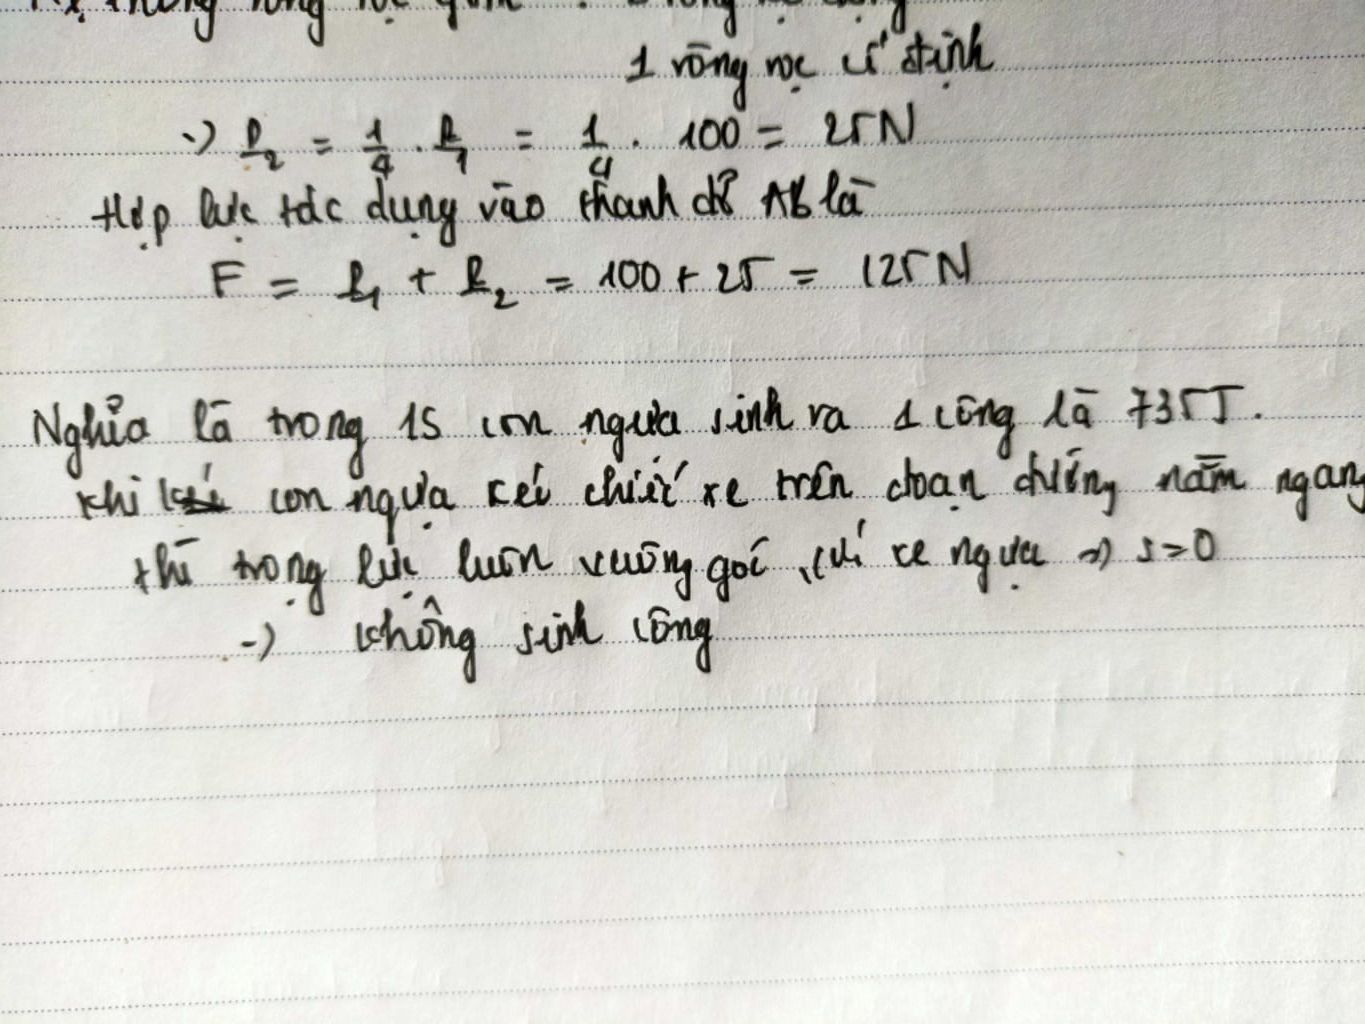 Hệ thống ròng rọc gồm : 2 ròng rọc động
1 ròng rọc cố định
=> P2 = 1/4 . P1 = 1/4 . 100 = 25N
Hợp lực tác dụng vào thanh đỡ AB là
F = P1 + P2 = 100 + 25 = 125N
Nghĩa là trong 1s con ngựa sinh ra 1 công là 735J.
Khi con ngựa kéo chiếc xe trên đoạn đường nằm ngang
thì trọng lực luôn vuông góc với xe ngựa => s=0
=> không sinh công